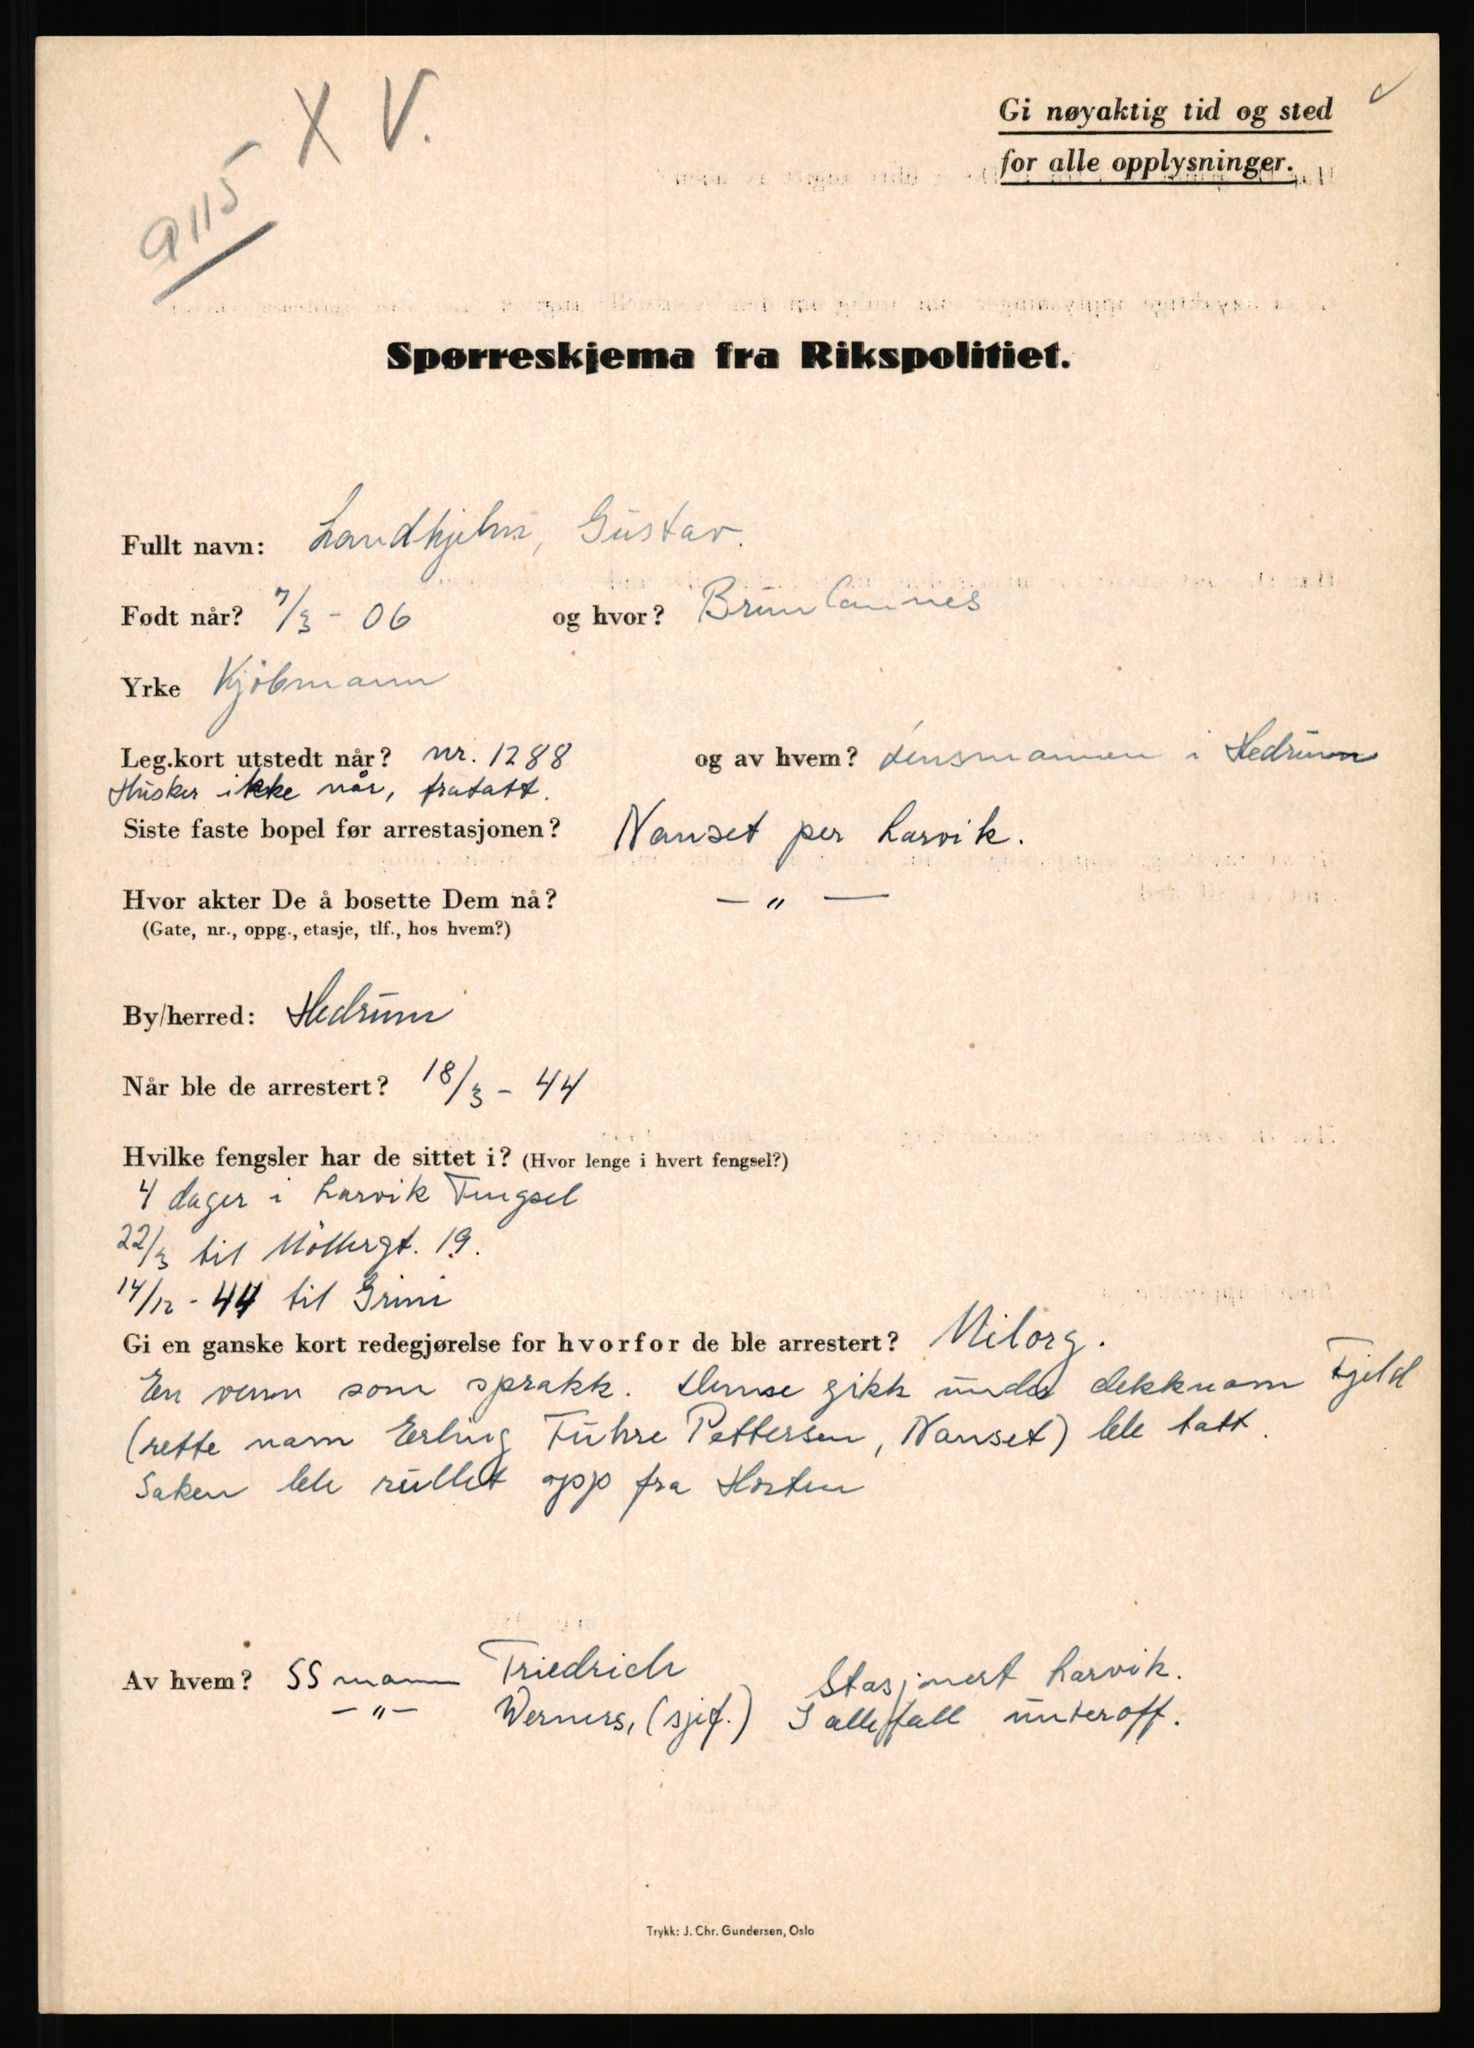 X V.
9115
Gi nøyaktig tid og sted
for alle opplysninger.
Spørreskjema fra Rikspolitiet.
Fullt navn: Landhjelm, Gustav.
Født når? 7/3 - 06 og hvor? Brunlannes
Yrke Kjöbmann
Leg.kort utstedt når? nr. 1288 og av hvem? Lensmannen i Hedrum
Husker ikke når, fratatt.
Siste faste bopel før arrestasjonen? Nanset per Larvik.
Hvor akter De å bosette Dem nå? — „ —
(Gate, nr., oppg., etasje, tlf., hos hvem?)
By/herred: Hedrum
Når ble de arrestert? 18/3 - 44
Hvilke fengsler har de sittet i? (Hvor lenge i hvert fengsel?)
4 dager i Larvik Fengsel
22/3 til Möllergt. 19.
14/12 - 44 til Grini
Gi en ganske kort redegjørelse for hvorfor de ble arrestert? Milorg.
En venn som sprakk. Denne gikk under dekknavn Fjeld
(rette navn Erling Fuhre Pettersen, Nanset) ble tatt.
Saken ble rullet opp fra Horten
Av hvem? SS mann Friedrich Stasjonert Larvik.
— „ — Werners, (sjef.) I allefall underoff.
Trykk: J. Chr. Gundersen, Oslo